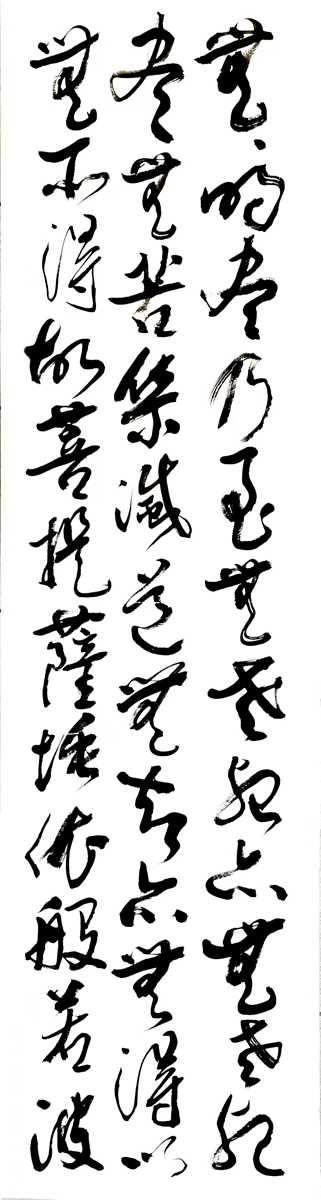 無々明盡乃至無老死亦無老死
盡無苦集滅道無智亦無得以
無所得故菩提薩埵依般若波